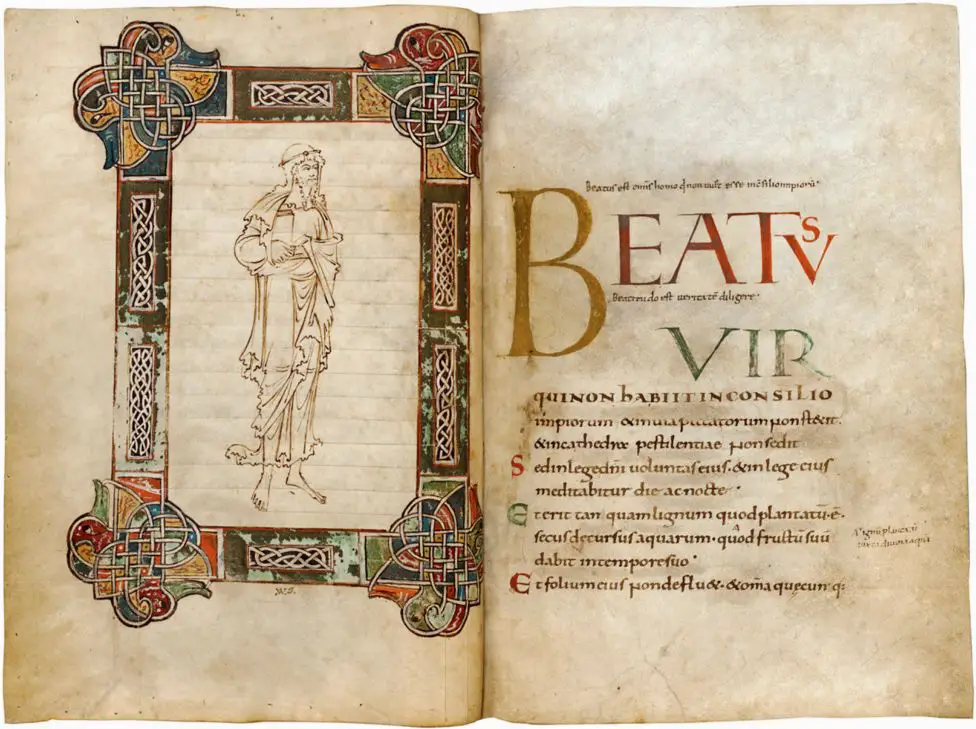 Beatus est omīs homo
BEATVS
Beatitudo est veritatē diligere
VIR
QUI NON HABIIT IN CONSILIO
impiorum & in uia peccatorum non stetit.
& in cathedra pestilentiae non sedit
Sed in lege dn̄i uoluntas eius. & in lege eius
meditabitur die ac nocte.
Et erit tan quam lignum quod plantatū ē.
secus decursus aquarum. quod fructū suū
dabit in tempore suo
Et folium eius non defluet. & om̄a quecunq: